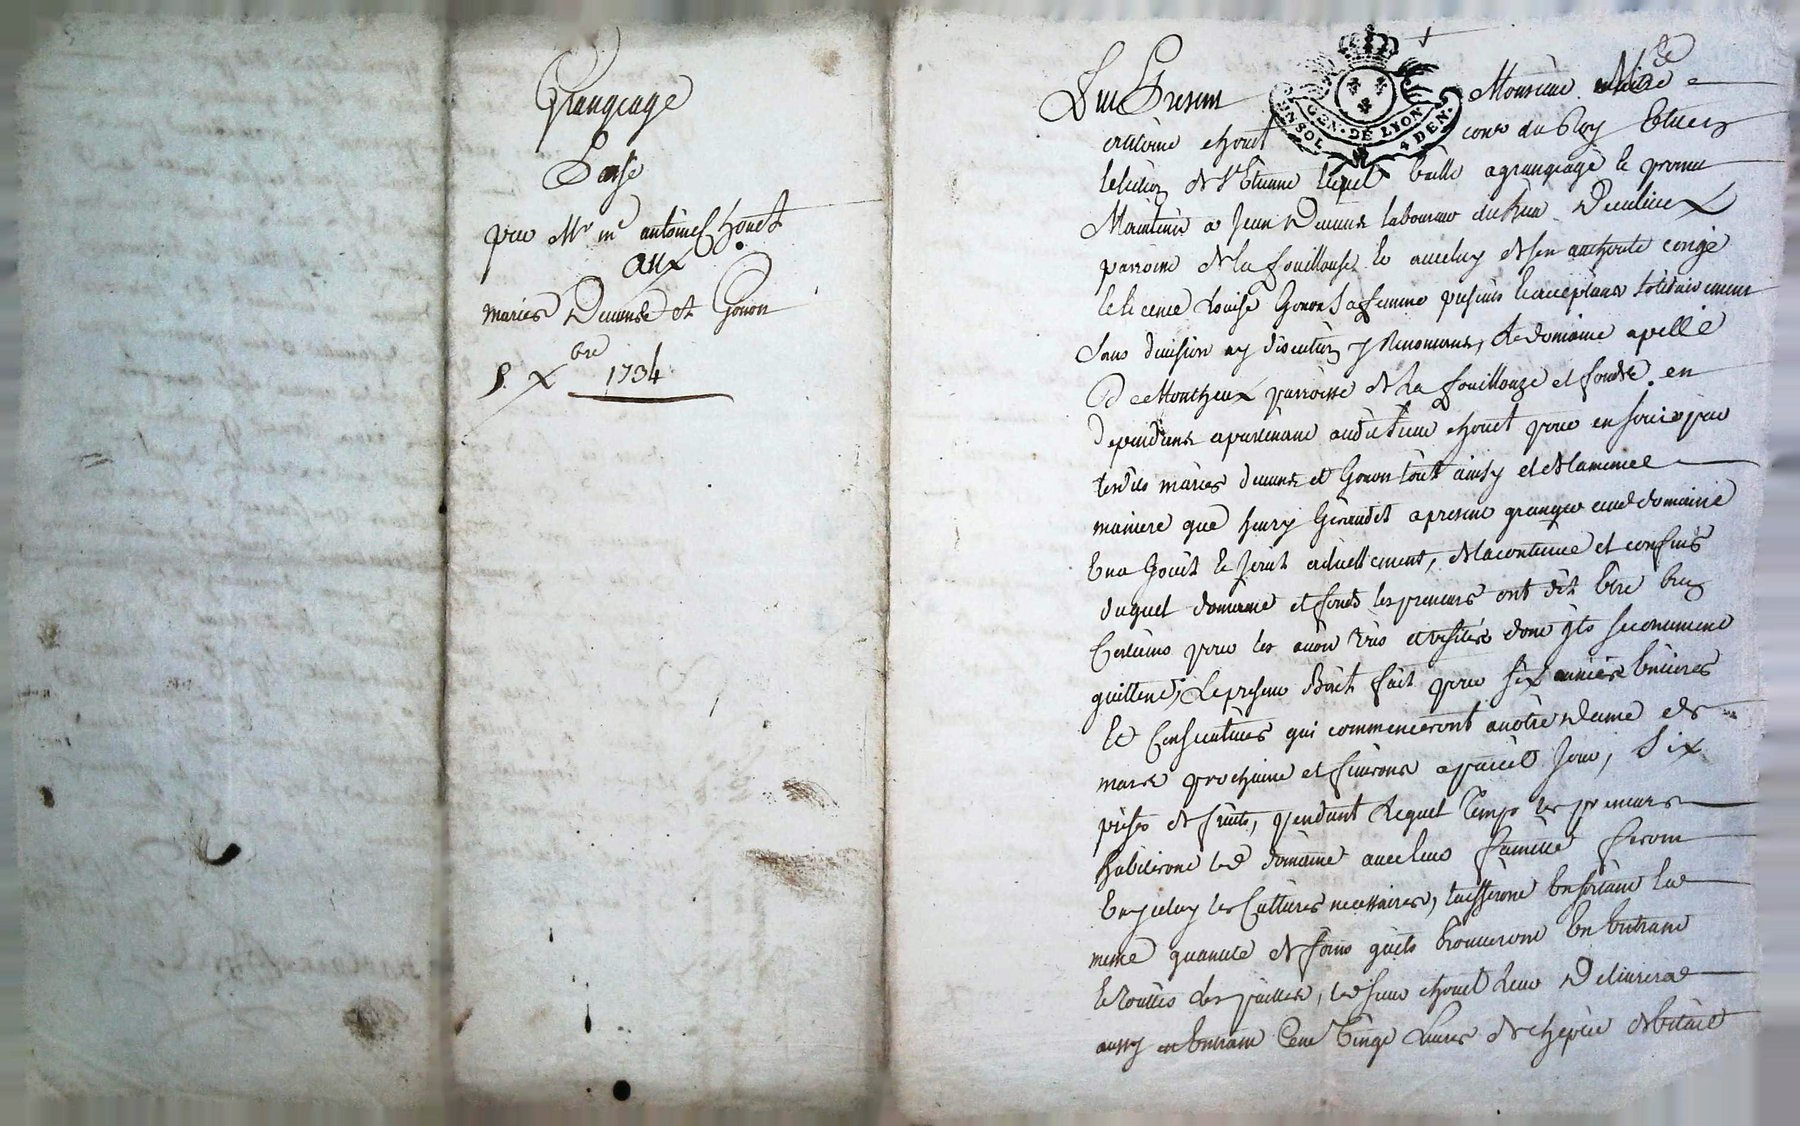 Grangeage
Passé
par Mr me antoine Chovet
aux
mariés Deveure et Gonon
8 Xbre 1734
Fut Present Monsieur Mre
antoine chovet conr du Roy
GEN. DE LYON
UN SOL 4 DEN.
de St Etienne lequel baille a grangeage et promet
Maintenir a Jean laboureur du lieu
parroisse de la fouillouse et avecluy de son authorité congé
et licence Louise Gonon sa femme presents et acceptans solidairement
sans division ny discution y Renonceans, Le domaine apellé
De Montheux parroisse de La fouillouze et fonds en
Dependans apartenant audit sieur chovet pour en jouir par
lesdits mariés et Gonon tout ainsy et de la meme
maniere que henry Giraudet a present granger dud domaine
En a Jouit et Jouit actuellement, de la contenue et confins
duquel domaine et fonds les preneurs ont dit être bien
Certains pour les avoir vûs et visités dont ils se contentent
quittent, Le present Bail fait pour six années entieres
Et Consecutives qui commenceront a notre Dame de
mars prochaine et finiront a pareil Jour, six
prises de fruits, pendant Lequel Temps les preneurs
habiteront led domaine avec leur famille feront
En iceluy les Cultures necessaires, laisseront En sortant la
meme quantité de foins quils trouveront En Entrant
Et Toutes les pailles, led sieur chovet Leur Delivrera
aussy en Entrant Cent vingt Livres de cheptel de bétail